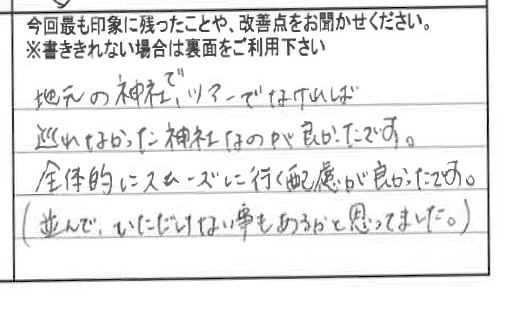 今回最も印象に残ったことや、改善点をお聞かせください。
※書ききれない場合は裏面をご利用下さい
地元の神社で、ツアーでなければ
巡れなかった神社なのが良かったです。
全体的にスムーズに行く配慮が良かったです。
(並んで、いただけない事もあるかと思ってました。)